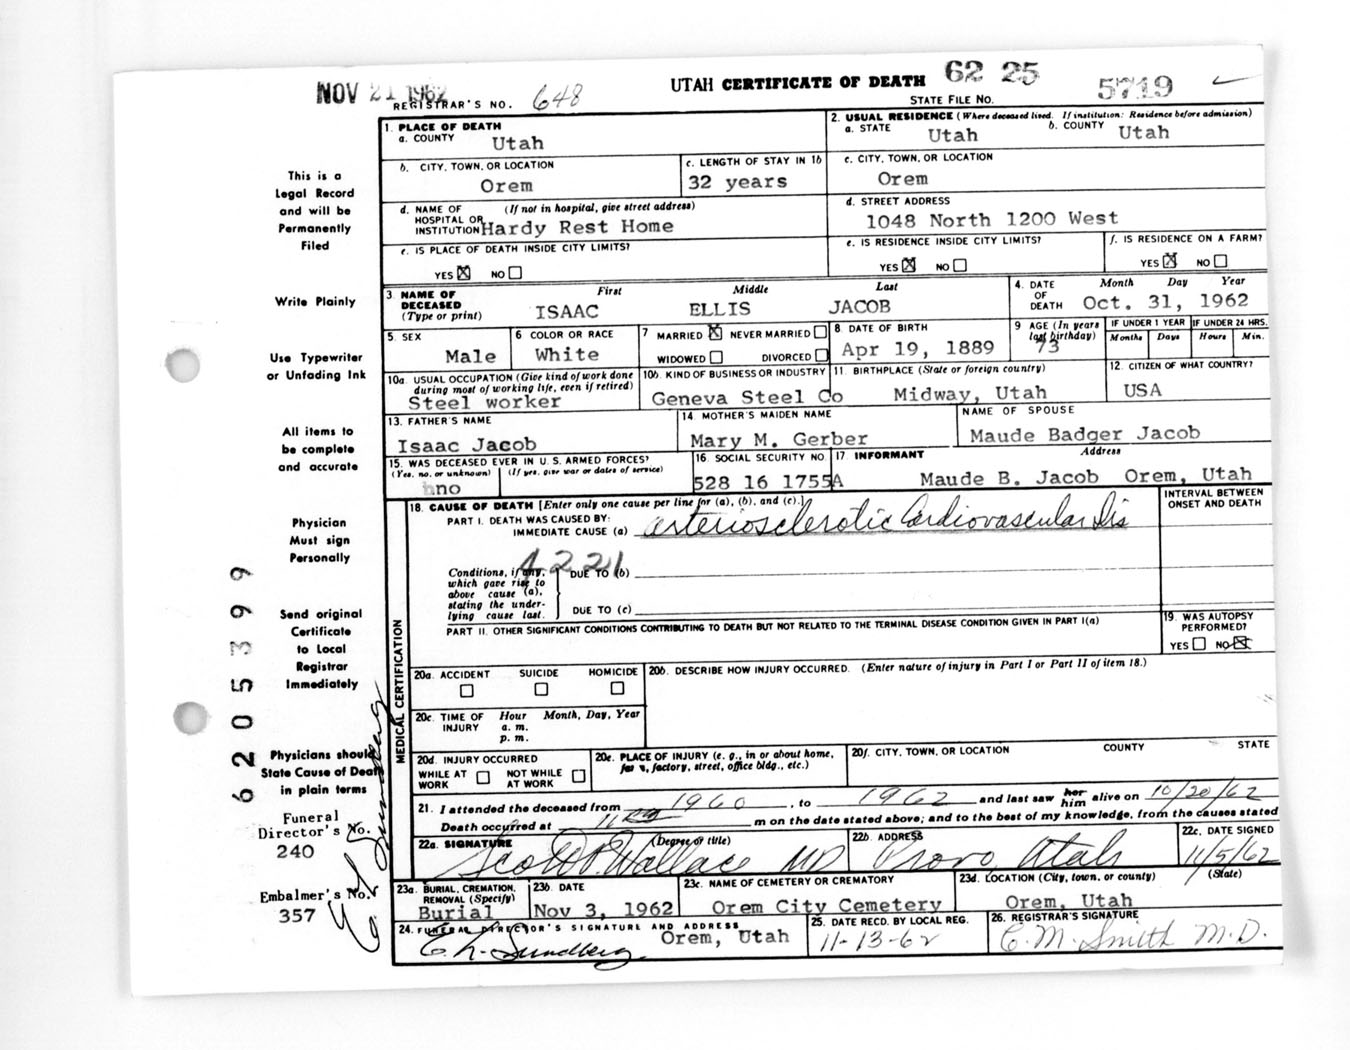 NOV 21 1962
REGISTRAR'S NO. 648
UTAH CERTIFICATE OF DEATH 62 25 5719
STATE FILE NO.
1. PLACE OF DEATH
a. COUNTY Utah
2. USUAL RESIDENCE (Where deceased lived. If institution: Residence before admission)
a. STATE Utah b. COUNTY Utah
b. CITY, TOWN, OR LOCATION
Orem
c. LENGTH OF STAY IN 1b
32 years
c. CITY, TOWN, OR LOCATION
Orem
d. NAME OF (If not in hospital, give street address)
HOSPITAL OR
INSTITUTION Hardy Rest Home
d. STREET ADDRESS
1048 North 1200 West
e. IS PLACE OF DEATH INSIDE CITY LIMITS?
YES X NO
e. IS RESIDENCE INSIDE CITY LIMITS?
YES X NO
f. IS RESIDENCE ON A FARM?
YES X NO
3. NAME OF DECEASED (Type or print)
First Middle Last
ISAAC ELLIS JACOB
4. DATE OF DEATH Month Day Year
Oct. 31, 1962
5. SEX
Male
6 COLOR OR RACE
White
7 MARRIED X NEVER MARRIED
WIDOWED DIVORCED
8 DATE OF BIRTH
Apr 19, 1889
9 AGE (In years last birthday)
73
IF UNDER 1 YEAR IF UNDER 24 HRS.
Months Days Hours Min.
10a. USUAL OCCUPATION (Give kind of work done
during most of working life, even if retired)
Steel worker
10b. KIND OF BUSINESS OR INDUSTRY
Geneva Steel Co
11. BIRTHPLACE (State or foreign country)
Midway, Utah
12. CITIZEN OF WHAT COUNTRY?
USA
13. FATHER'S NAME
Isaac Jacob
14. MOTHER'S MAIDEN NAME
Mary M. Gerber
NAME OF SPOUSE
Maude Badger Jacob
15. WAS DECEASED EVER IN U.S. ARMED FORCES?
(Yes, no. or unknown) (If yes, give war or dates of service)
no
16. SOCIAL SECURITY NO
528 16 1755A
17 INFORMANT Address
Maude B. Jacob Orem, Utah
18. CAUSE OF DEATH [Enter only one cause per line for (a), (b), and (c).]
PART I. DEATH WAS CAUSED BY:
IMMEDIATE CAUSE (a) Arteriosclerotic Cardiovascular Dis
INTERVAL BETWEEN
ONSET AND DEATH
4221
Conditions, if any,
which gave rise to
above cause (a),
stating the under-
lying cause last.
DUE TO (b)
DUE TO (c)
PART II. OTHER SIGNIFICANT CONDITIONS CONTRIBUTING TO DEATH BUT NOT RELATED TO THE TERMINAL DISEASE CONDITION GIVEN IN PART I(a)
19. WAS AUTOPSY
PERFORMED?
YES NO X
MEDICAL CERTIFICATION
20a. ACCIDENT SUICIDE HOMICIDE
20b. DESCRIBE HOW INJURY OCCURRED. (Enter nature of injury in Part I or Part II of item 18.)
20c. TIME OF INJURY Hour Month, Day, Year
a. m.
p. m.
20d. INJURY OCCURRED
WHILE AT WORK NOT WHILE AT WORK
20e. PLACE OF INJURY (e. g., in or about home,
factory, street, office bldg., etc.)
20f. CITY, TOWN, OR LOCATION COUNTY STATE
21. I attended the deceased from 1960, to 1962 and last saw her him alive on 10/20/62
Death occurred at 11 m on the date stated above; and to the best of my knowledge, from the causes stated
22a. SIGNATURE (Degree or title)
Scott Wallace MD
22b. ADDRESS
Provo, Utah
22c. DATE SIGNED
11/5/62
23a. BURIAL, CREMATION,
REMOVAL (Specify)
Burial
23b. DATE
Nov 3, 1962
23c. NAME OF CEMETERY OR CREMATORY
Orem City Cemetery
23d. LOCATION (City, town, or county) (State)
Orem, Utah
24. FUNERAL DIRECTOR'S SIGNATURE AND ADDRESS
E. L. Sundberg Orem, Utah
25. DATE RECD. BY LOCAL REG.
11-13-62
26. REGISTRAR'S SIGNATURE
C. M. Smith M.D.
This is a
Legal Record
and will be
Permanently
Filed
Write Plainly
Use Typewriter
or Unfading Ink
All items to
be complete
and accurate
Physician
Must sign
Personally
Send original
Certificate
to Local
Registrar
Immediately
Physicians should
State Cause of Death
in plain terms
Funeral
Director's No.
240
Embalmer's No.
357
E L Sundberg
6205399